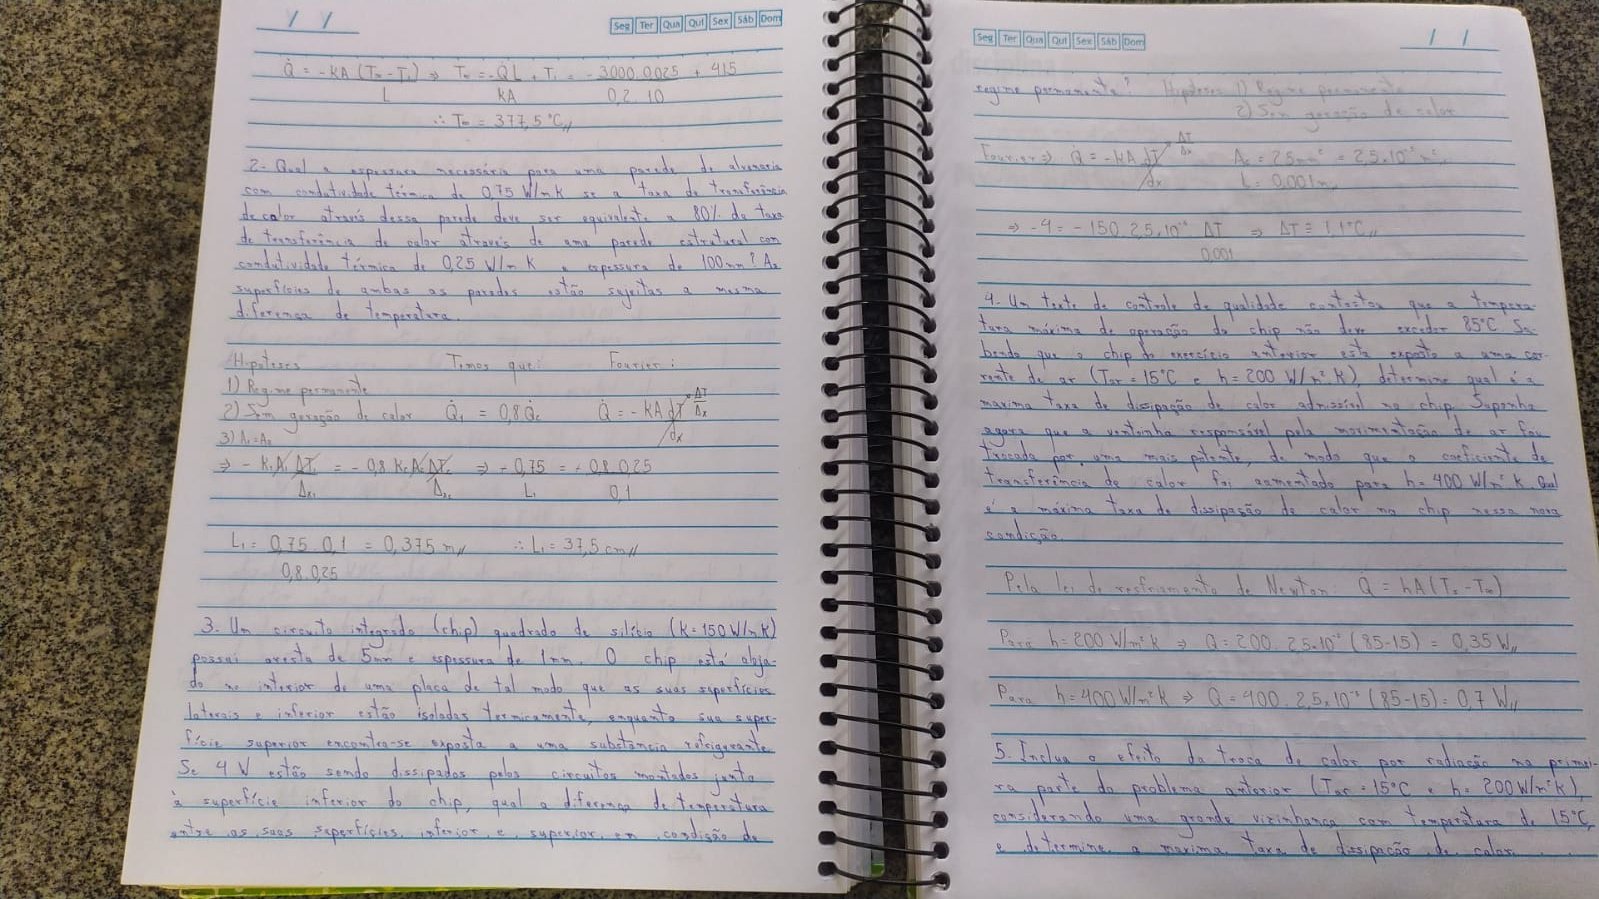 / /
Seg Ter Qua Qui Sex Sáb Dom
Q̇ = -kA (T∞ - T₁) ⇒ T∞ = -Q̇L + T₁ = - 3000.0,025 + 415
L kA 0,2 . 10
∴ T∞ = 377,5 °C //
2- Qual a espessura necessária para uma parede de alvenaria
com condutividade térmica de 0,75 W/mK se a taxa de transferência
de calor através dessa parede deve ser equivalente a 80% da taxa
de transferência de calor através de uma parede estrutural com
condutividade térmica de 0,25 W/m K e espessura de 100mm? As
superfícies de ambas as paredes estão sujeitas a mesma
diferença de temperatura.
Hipoteses Temos que: Fourier:
1) Regime permanente
2) Sem geração de calor Q̇₁ = 0,8 Q̇₂ Q̇ = -kA dT/dx ΔT/Δx
3) A₁=A₂
⇒ -K₁A₁ ΔT₁/Δx₁ = -0,8 K₂A₂ ΔT₂/Δx₂ ⇒ -0,75/L₁ = -0,8.0,25/0,1
L₁ = 0,75 . 0,1 = 0,375 m // ∴ L₁ = 37,5 cm //
0,8.0,25
3. Um circuito integrado (chip) quadrado de silício (k=150 W/mK)
possui aresta de 5mm e espessura de 1mm. O chip está aloja-
do no interior de uma placa de tal modo que as suas superfícies
laterais e inferior estão isoladas termicamente, enquanto sua super-
fície superior encontra-se exposta a uma substância refrigerante.
Se 4 W estão sendo dissipados pelos circuitos montados junto
à superfície inferior do chip, qual a diferença de temperatura
entre as suas superfícies inferior e superior, em condição de
Seg Ter Qua Qui Sex Sáb Dom
/ /
regime permanente? Hipoteses 1) Regime permanente
2) Sem geração de calor
Fourier ⇒ Q̇ = -kA dT/dx ΔT/Δx A₂ = 25mm² = 2,5×10⁻⁵ m² //
L = 0,001m
⇒ -4 = -150. 2,5×10⁻⁵ ΔT ⇒ ΔT ≅ 1,1°C //
0,001
4. Um teste de controle de qualidade constatou que a tempera-
tura máxima de operação do chip não deve exceder 85°C. Sa-
bendo que o chip do exercício anterior esta exposto a uma cor-
rente de ar (Tar = 15°C e h = 200 W/m² K), determine qual é a
maxima taxa de dissipação de calor admissível no chip. Suponha
agora que a ventoinha responsável pela movimentação de ar foi
trocada por uma mais potente, de modo que o coeficiente de
transferência de calor foi aumentado para h = 400 W/m² K. Qual
é a máxima taxa de dissipação de calor no chip nessa nova
condição.
Pela lei do resfriamento de Newton: Q̇ = hA(Ts - T∞)
Para h=200 W/m²K ⇒ Q̇ = 200 . 2,5×10⁻⁵ (85-15) = 0,35 W //
Para h=400 W/m²K ⇒ Q̇ = 400 . 2,5×10⁻⁵ (85-15) = 0,7 W //
5. Inclua o efeito da troca de calor por radiação na primei-
ra parte do problema anterior (Tar = 15°C e h= 200 W/m²K),
considerando uma grande vizinhança com temperatura de 15°C,
e determine a maxima taxa de dissipação de calor.